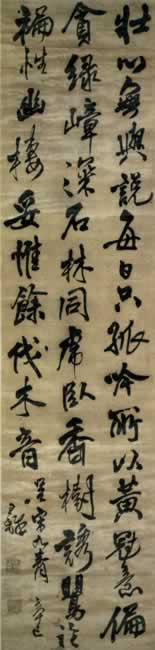 壯心無與說每日只孤吟所以黃冠意偏
貪綠嶂深石林同席臥香樹誘
褊性幽棲妥惟餘伐木音呈宋九青
王鐸